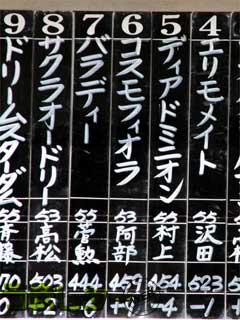 9 8 7 6 5 4
ドリームスタダム
サクラオードリー
バラディー
コスモフィオラ
ディアドミニオン
エリモメイト
55 53 55 53 55 55
斉藤 高松 菅敷 阿部 村上 沢田
70 503 444 459 454 523
0 +2 -6 -4 -1